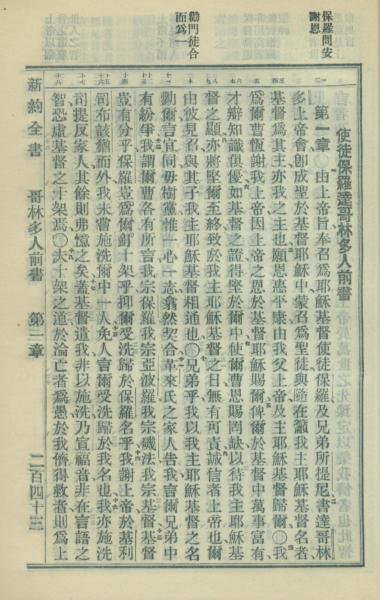 保羅問安
謝恩
勸門徒合
而爲一
使徒保羅達哥林多人前書
第一章○由上帝旨奉召爲耶穌基督使徒保羅及兄弟所提尼書達哥林
多上帝會卽成聖於基督耶穌中蒙召爲聖徒與隨在籲我主耶穌基督名者
基督爲其主亦我之主也願恩惠平康由我父上帝及主耶穌基督歸爾○我
爲爾曹恆謝我上帝因上帝之恩於基督耶穌賜爾俾爾於基督中萬事富有
才辯知識俱優如基督之證得堅於爾中使爾曹恩賜罔缺以待我主耶穌基
督之顯亦將堅爾至終致於我主耶穌基督之日無有可責誠信者上帝也爾
由彼見召與其子我主耶穌基督相通也○兄弟乎我以我主耶穌基督之名
勸爾言宜同毋樹黨惟一心一志翕然契合革來氏之家人告我言爾兄弟中
有紛爭我謂爾曹各有所言我宗保羅我宗亞波羅我宗磯法我宗基督基督
豈有分乎保羅豈爲爾釘十架乎抑爾受洗歸於保羅名乎我謝上帝於基利
司布該猶而外我未嘗施洗爾中一人免人言爾受洗歸於我名也我亦施洗
司提反家人其餘則弗憶之矣蓋基督遣我非以施洗乃宣福音非在言語之
智恐虛基督之十架焉○夫十架之道於淪亡者爲愚於我儕得救者則爲上
新約全書 哥林多人前書 第一章 二百四十三